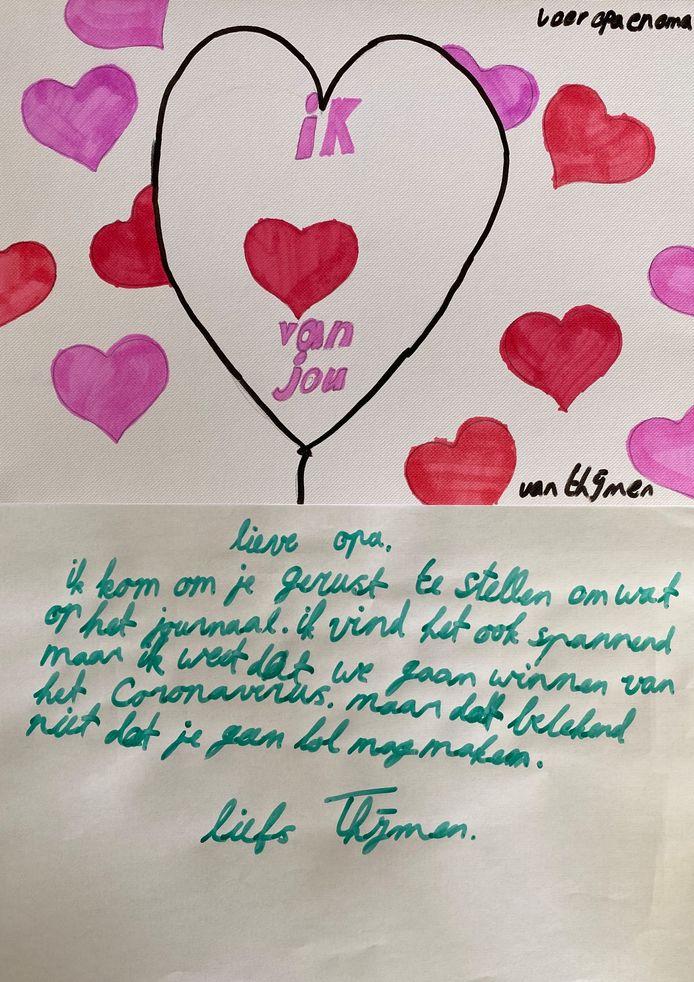 voor opa en oma
ik
van
jou
van thijmen
lieve opa,
ik kom om je gerust te stellen om wat
op het journaal. ik vind het ook spannend
maar ik weet dat we gaan winnen van
het Coronavirus. maar dat betekend
niet dat je geen lol mag maken.
liefs Thijmen.